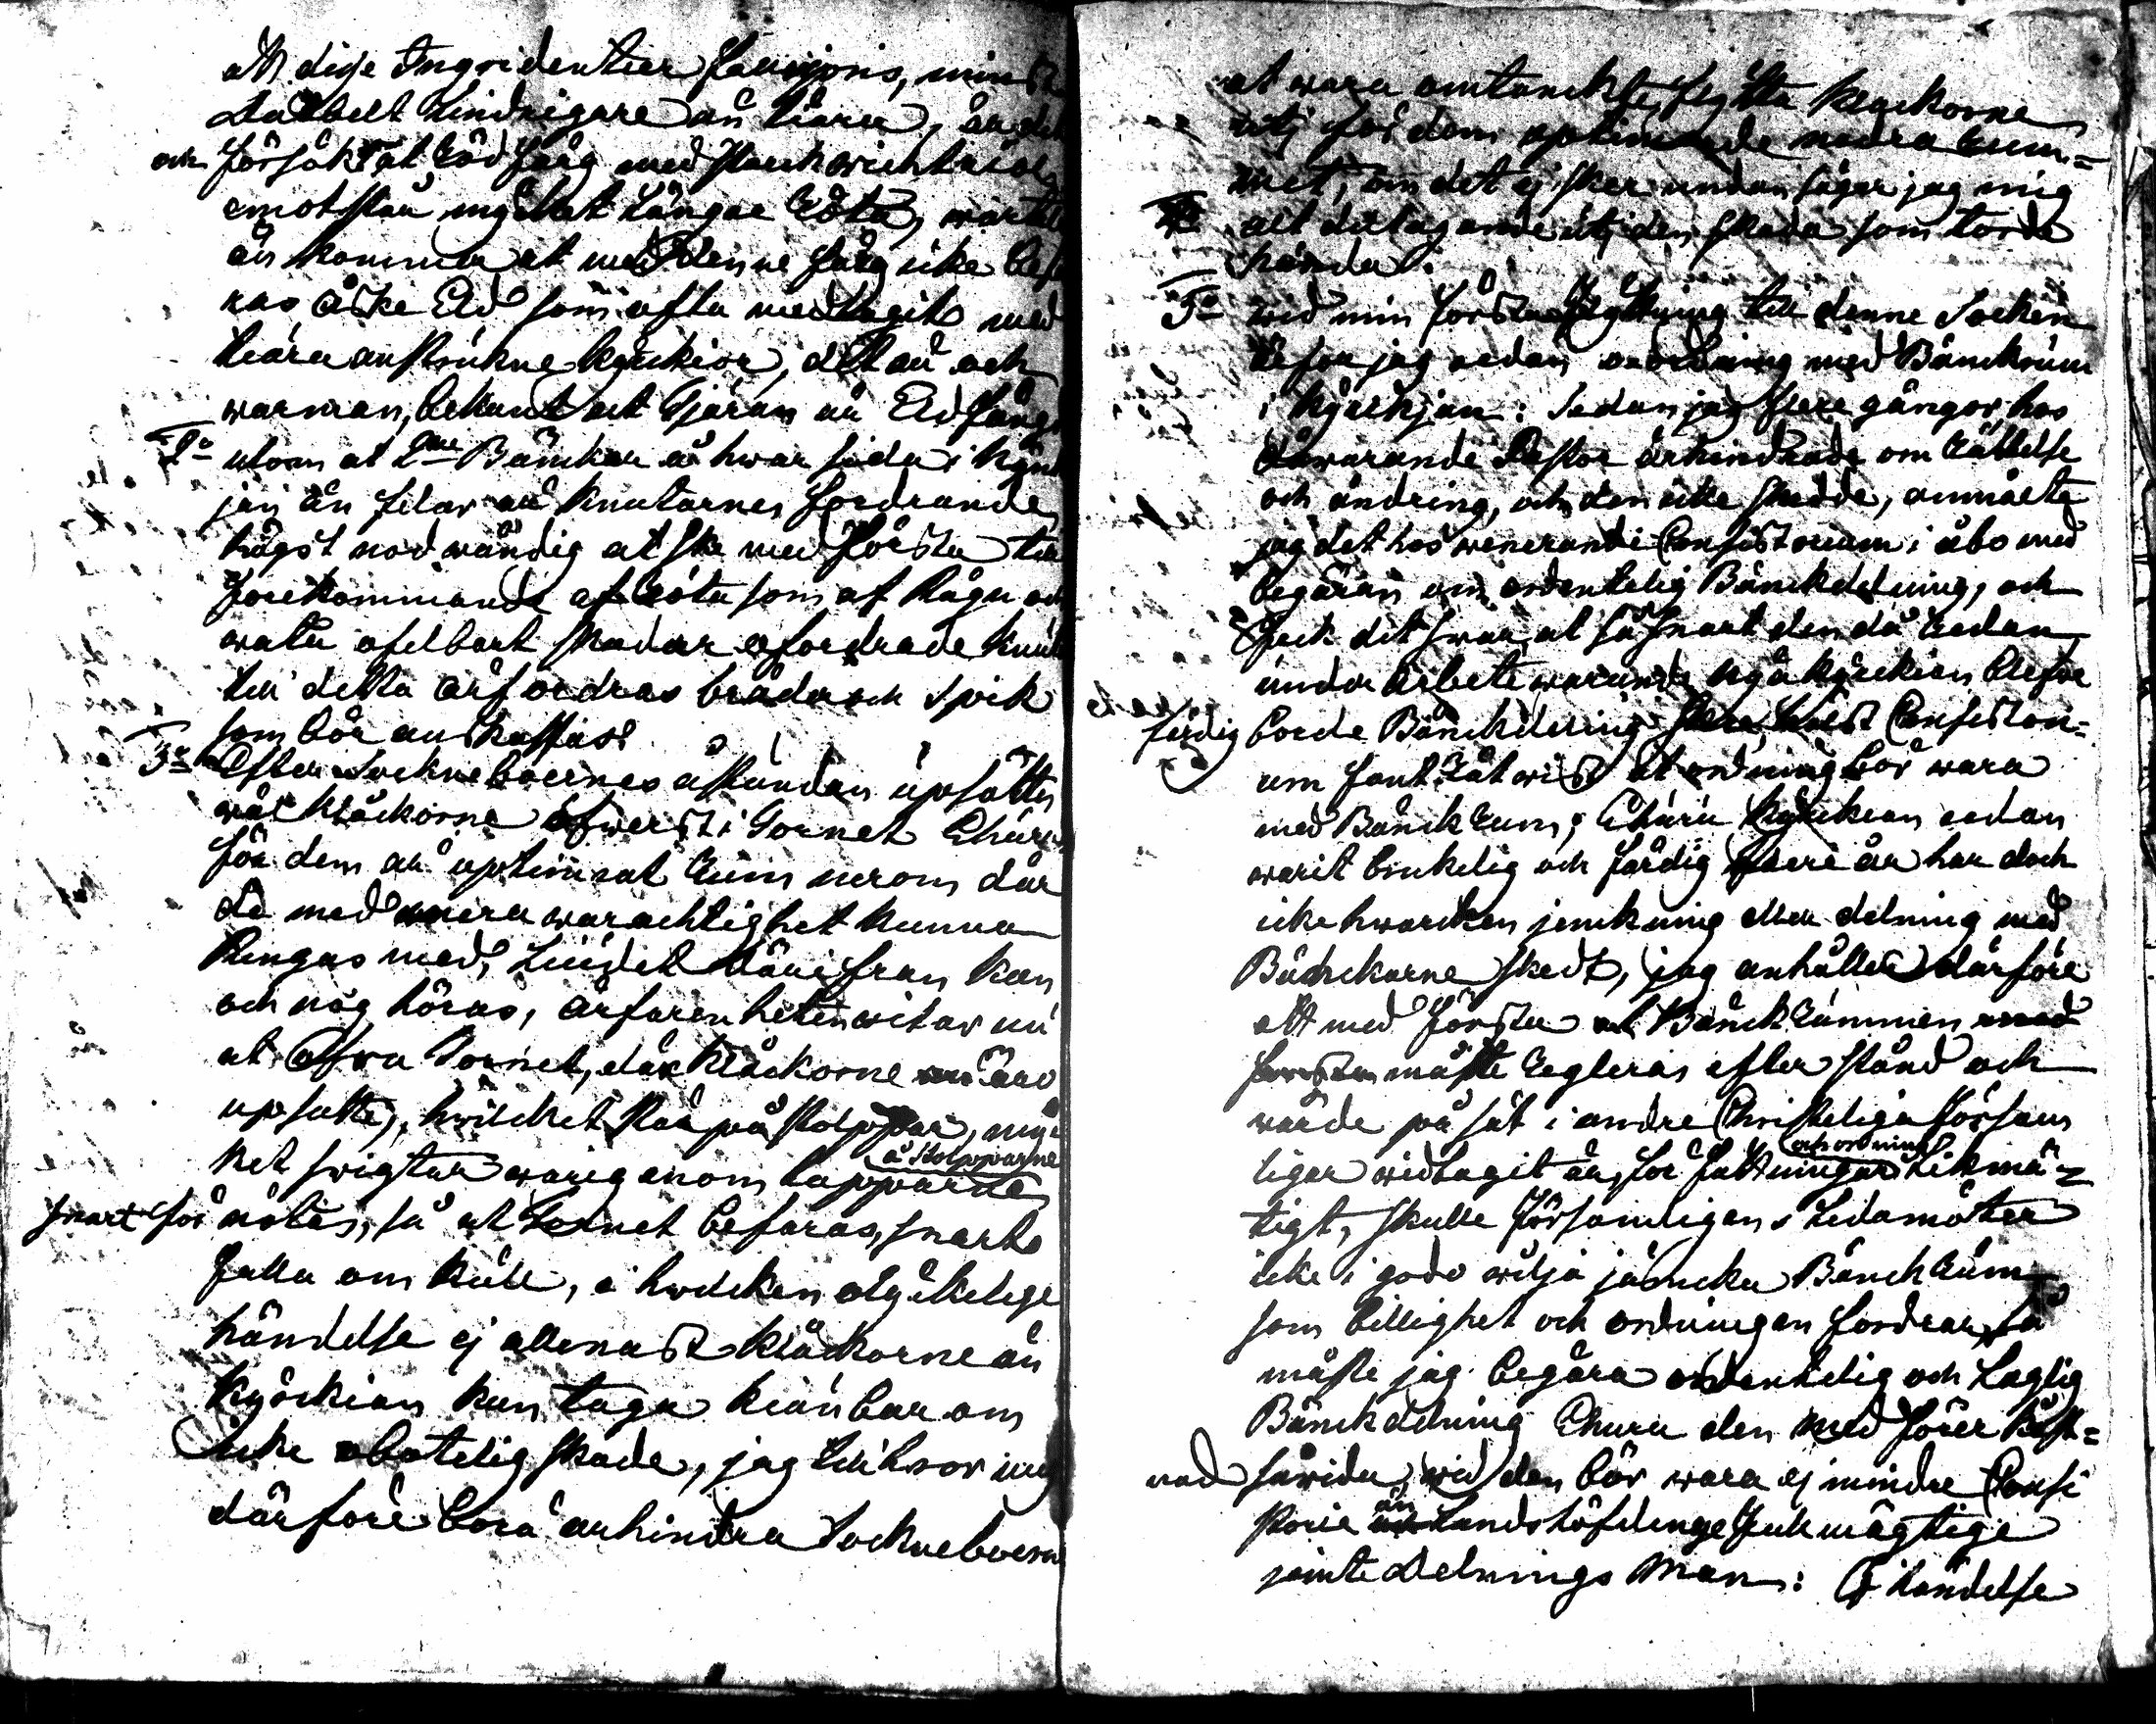 att dise Ingridentier
dubbelt lindrigare än tiära, är det
och försökt at röd färg med stark
emot står mycket längre röta,
än kommer at med denne färg icke
kas åske Eld som ofta medtagit med
tiära anstrukne kyrkior, det är och
warman bekant at Tjäran är Eld
2o utom at 2ne Bänckar å hwar sida i
jan än felar är knutarnes fordrande
högst nodwändig at ske med första
förekommande af röta som af Rägn och
watn ofelbart skadar
till detta ärfordras bräder och spik
som bör anskaffas.
3o Efter Sockneboernes åstundan upsattes
wåt klåckorne öfwerst i Tornet Ehuru
för dem är uptimrat rum nerom där
de med mera warachtighet kunna
Ringas med, Liudet därifrån kan
och nog höras, ärfarenheten witar nu
at öfra Tornet, där klåckorne äro
upsatte, hwilcket står på stolppar, myc
ket swigtar
å stolpparne
snart för nötes, så at Tornet befaras, snart
falla om kull, i hwilcken olyckelige
händelse ej allenast klåckorne än
kyrckian kan taga
icke obotelig skade, jag
därföre böra ärhindra Sockneboerne
at wara omtänckte, flytta klåckorne
uti för dem uptimrade nedra rum=
met, om det ej sker undan sägar jag mig
4o alt deltagande uti den skada som torde
hända.
5o wid min första flyttning till denne Socken
jag redan oordning med Bänckrum
i kyrckjan: Sedan jag flere gångor hos
dåwarande Pastor ärhindrade om rättelse
och ändring, och den icke skedde, anmälte
jag det hos wenerandi Consistorium i åbo med
begäran om ordentelig Bänckdelning, och
feck det swar, at så snart den då redan
under arbete warande nya kyrckian blefwe
färdig borde Bänckdelning skee, Consistori=
um fant rätwist at ordning bör wara
med Bänckrum; Ehuru kyrckian redan
warit brukelig och färdig flere år har doch
icke hwarcken jemkning eller delning med
Bänckarne skedt, jag anhåller därföre
att med första at Bänckrummen
måste regleras efter stånd och
wärde på sät i andre Christeliga försam
ligar widtagit är, författningar likmä=
och ordning
tigt, skulle församligens Ledamöter
icke i godo wilja jämcka Bänckrum
som billighet och ordningen fordrar, så
måste jag begära ordentelig och Laglig
Bänckdelning Ehuru den med förer kåst=
nad wid den bör wara ej mindre Consi
storie än Landshöfdinge fullmägtige
jämte Delnings Man: I händelse